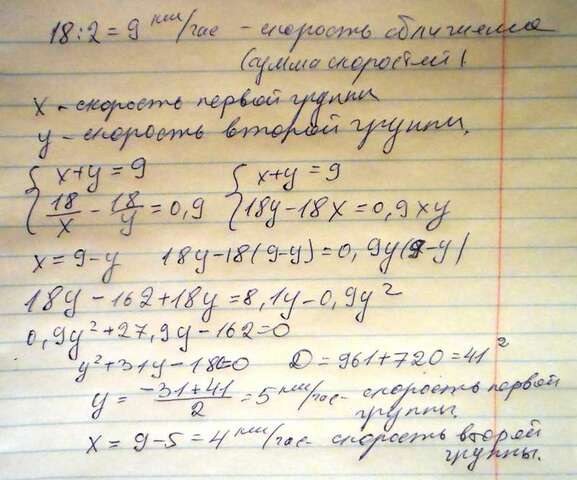 18:2=9 км/час - скорость сближения
(сумма скоростей)
x - скорость первой группы
y - скорость второй группы.
{ x+y=9 { x+y=9
18/x - 18/y = 0,9 18y-18x=0,9xy
x=9-y 18y-18(9-y)=0,9y(9-y)
18y-162+18y=8,1y-0,9y²
0,9y²+27,9y-162=0
y²+31y-180=0 D=961+720=41²
y = (-31+41)/2 = 5 км/час - скорость первой
группы.
x=9-5=4 км/час - скорость второй
группы.